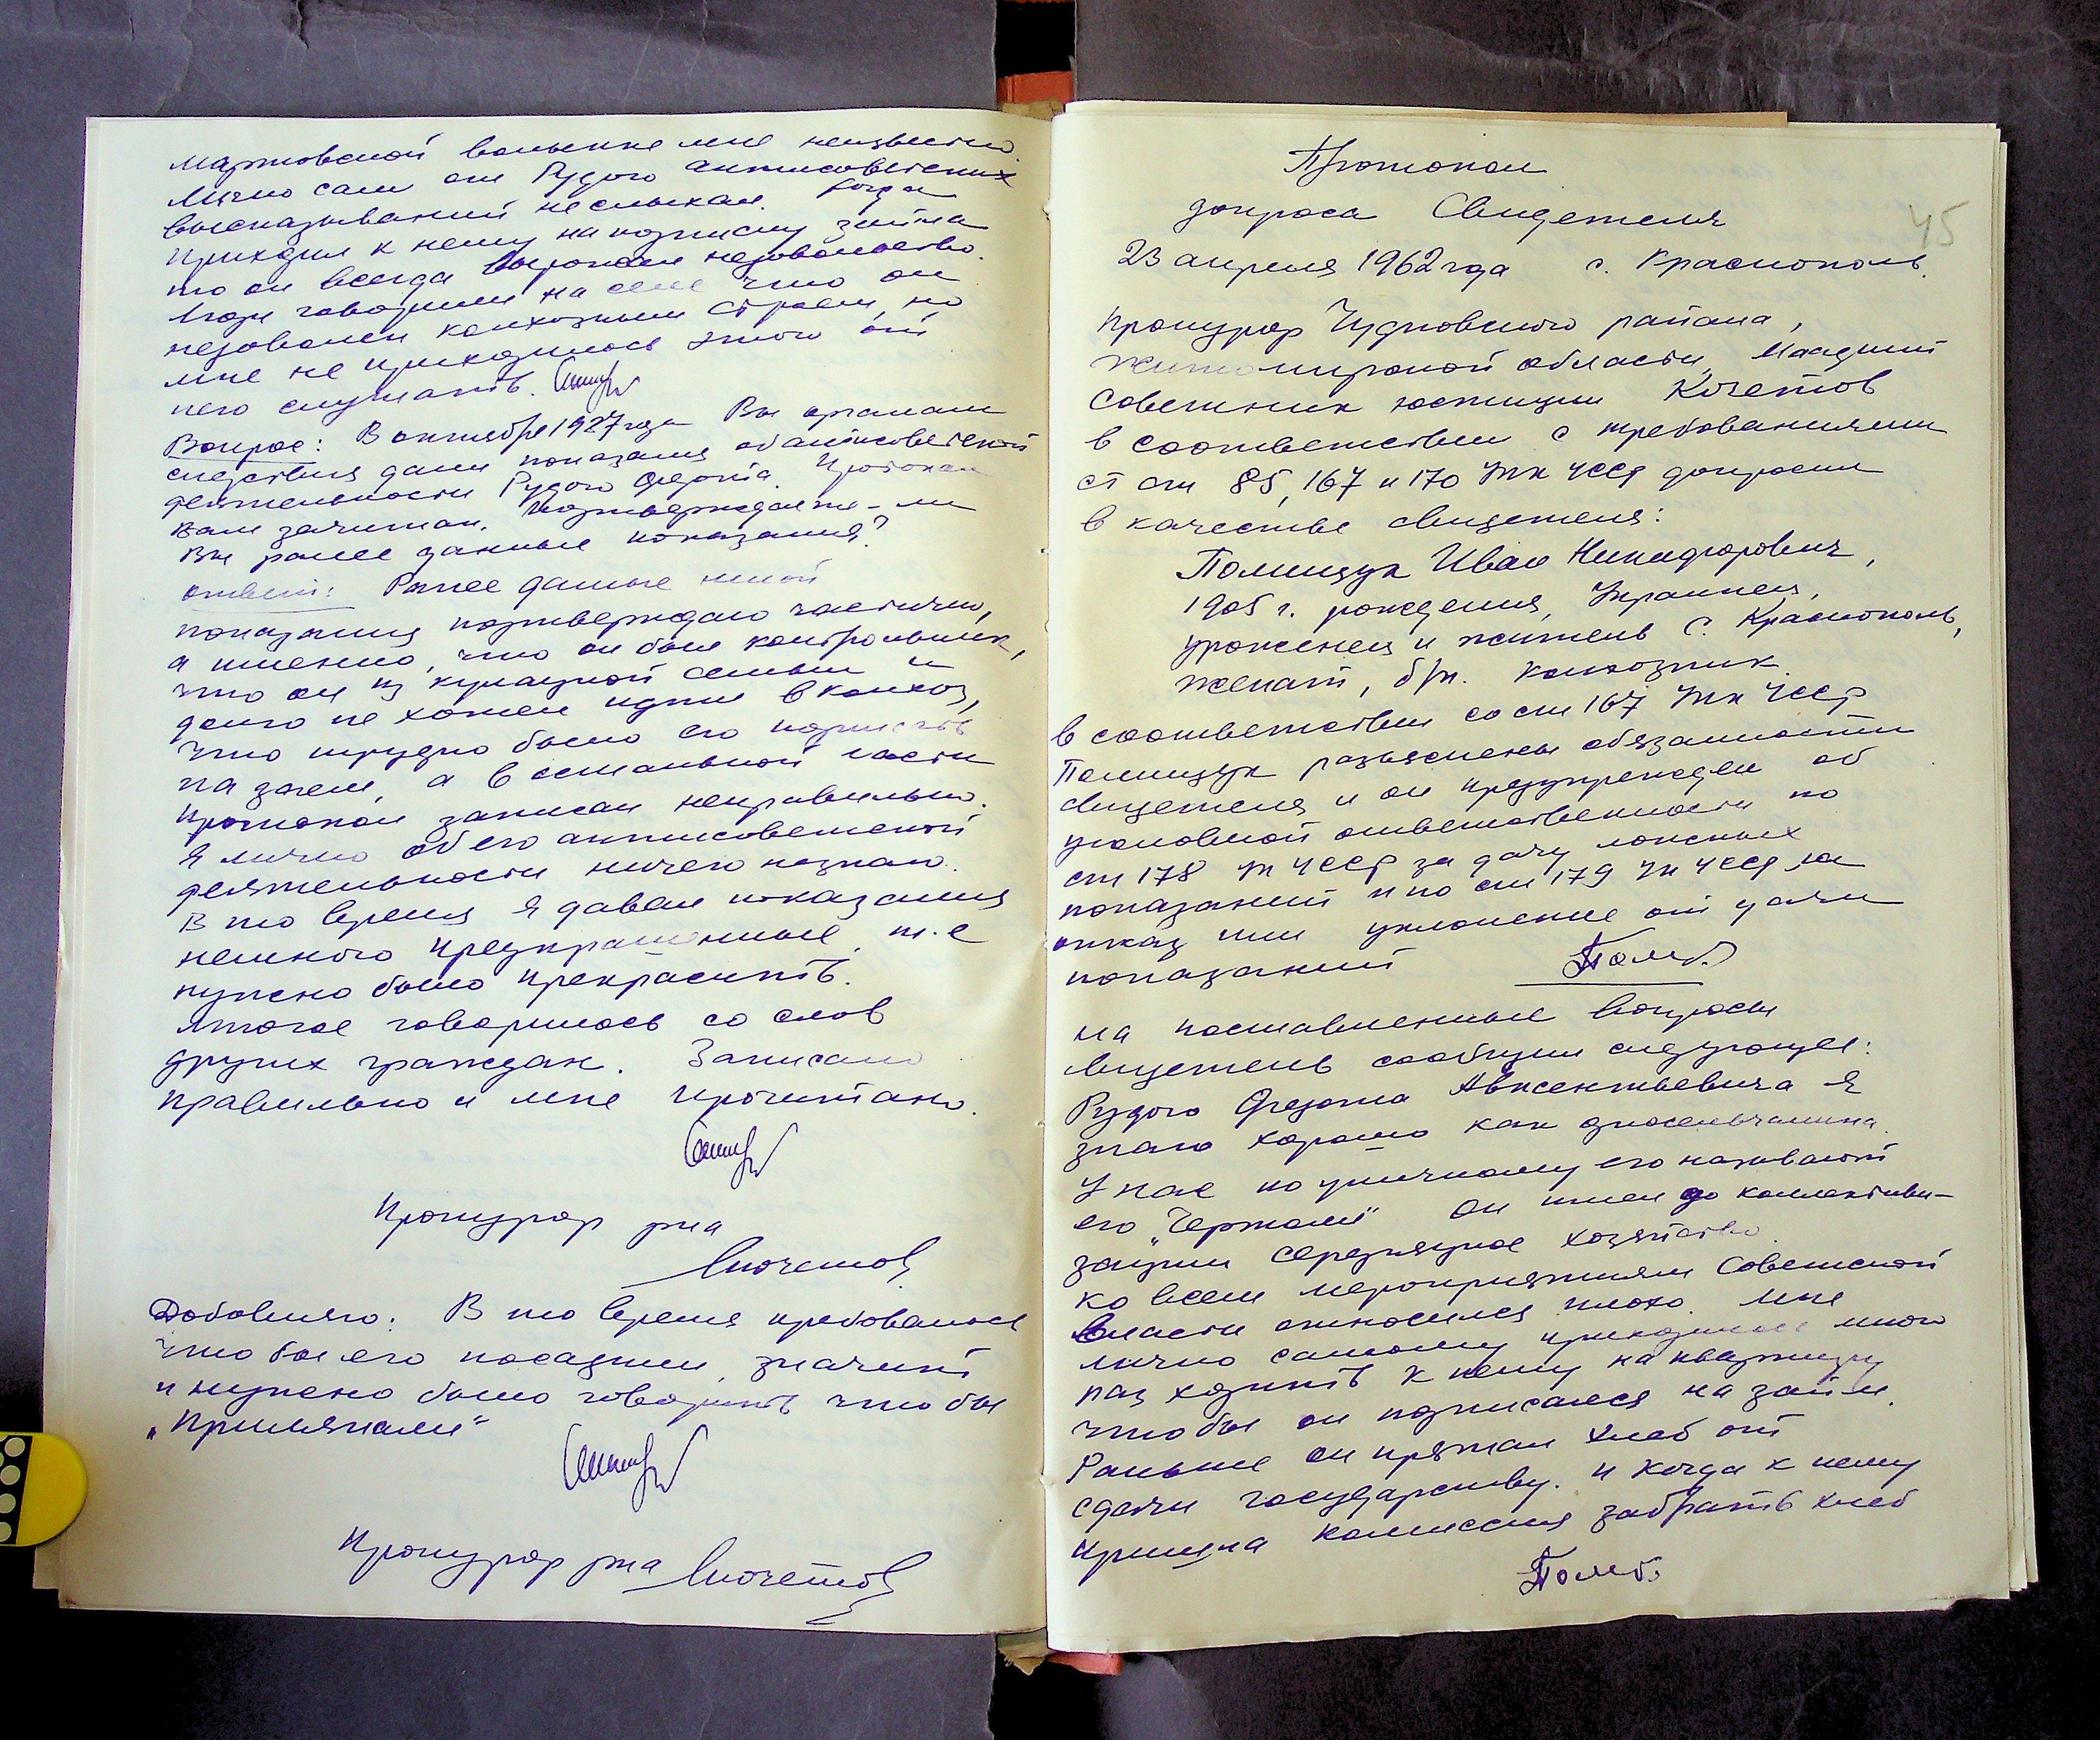 мартовской волынке мне неизвестно.
Лично сам от Рудого антисоветских
высказываний не слыхал. Когда
приходил к нему на подписку займа
то он всегда выражал недовольство.
Люди говорили на селе что он
недоволен колхозным строем, но
мне не приходилось этого от
него слушать.
Вопрос: В октябре 1937 года Вы органам
следствия дали показания об антисоветской
деятельности Рудого Федота. Протокол
Вам зачитан. Подтверждаете-ли
Вы ранее данные показания?
ответ: Ранее данные мной
показания подтверждаю частично,
а именно, что он был контрольщик,
что он из кулацкой семьи и
долго не хотел идти в колхоз,
что трудно было его подписать
на заем, а в остальной части
протокол записан неправильно.
Я лично об его антисоветской
деятельности ничего не знаю.
В то время я давал показания
немного преукрашенные, т.е
нужно было прекрасить.
многое говорилось со слов
других граждан. Записано
правильно и мне прочитано.
Прокурор р-на
Кочетов
Добовляю: В то время требовалось
что бы его посадили, значит
и нужно было говорить что бы
„Припяками"
Прокурор р-на Кочетов
45
Протокол
допроса Свидетеля
23 апреля 1962 года с. Краснополь.
Прокурор Чудновского района,
Житомирской области, Младший
Советник юстиции Кочетов
в соответствии с требованиями
ст ст 85, 167 и 170 УПК УССР допросил
в качестве свидетеля:
Полищук Иван Никифорович,
1905 г. рождения, Украинец,
уроженец и житель с. Краснополь,
женат, б/п. колхозник.
В соответствии со ст 167 УПК УССР
Полищук разъяснены обязанности
свидетеля и он предупрежден об
уголовной ответственности по
ст 178 УК УССР за дачу ложных
показаний и по ст 179 УК УССР за
отказ или уклонение от дачи
показаний
на поставленные вопросы
свидетель сообщил следующее:
Рудого Федота Авксентьевича я
знаю хорошо как односельчанина.
У нас по уличному его называют
его „Чертом" Он имел до коллективи-
зации середняцкое хозяйство.
ко всем мероприятиям Советской
власти относился плохо. Мне
лично самому приходилось много
раз ходить к нему на квартиру
что бы он подписался на займ.
Раньше он прятал хлеб от
сдачи государству. И когда к нему
пришла комиссия забрать хлеб